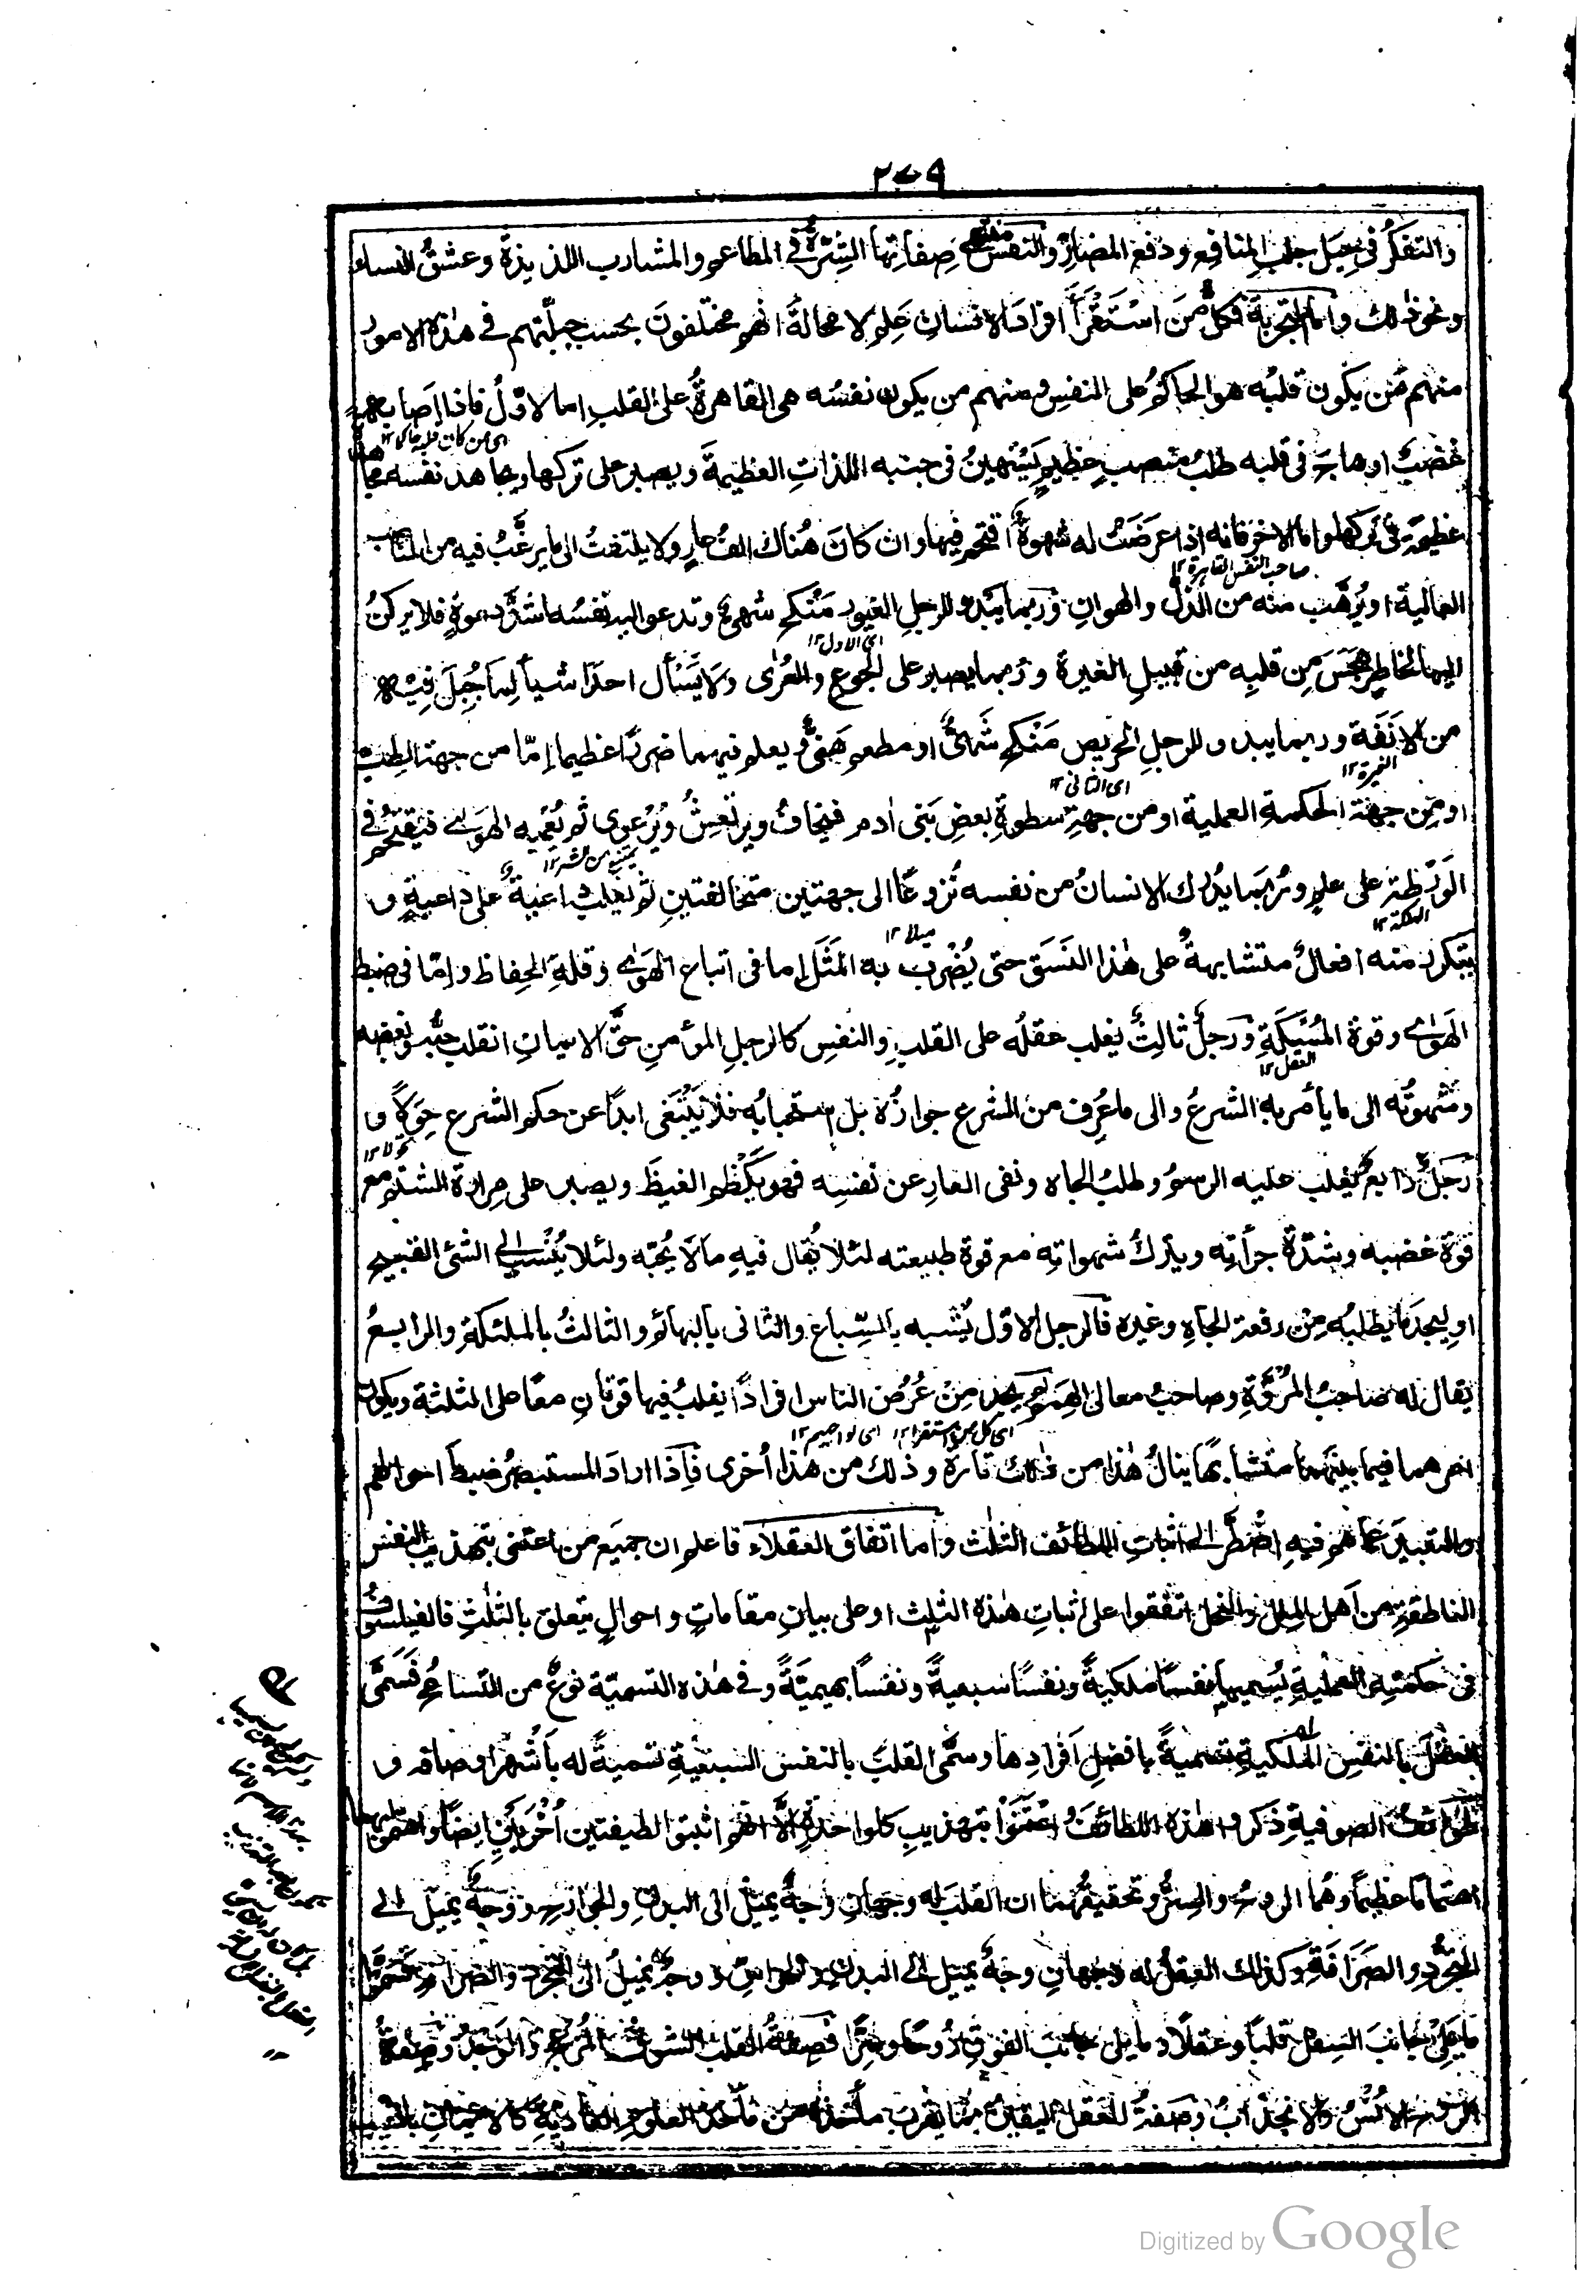 ٢٧٩
والتفكر في حِيَل جلب المنافع ودفع المضارّ والنفس منتهى صِفاتِها الشَّرَهُ في المطاعم والمشارب اللذيذةِ وعشقُ النساء
ونحو ذلك وأما التجربة فكلّ من استَقْرَأَ افراد الانسان عَلِمَ لا محالةَ انهم مختلفونَ بحسب جبلّتهم في هذه الامور
منهم مَن يكون قلبُه هو الحاكمُ على النفسِ ومنهم من يكون نفسُه هي القاهرةُ على القلبِ اما الاوّلُ فاذا اصابه
اى من كان قلبه حاكما ١٢
غضبٌ او هاج في قلبه طلبُ منصبٍ عظيمٍ يَسْتهينُ في جنبه اللذاتِ العظيمةَ ويصبر على تركها ويجاهد نفسه مجاهدة
عظيمة في تركها واما الاخر فانه اذا عرَضَتْ له شهوةٌ اقتحم فيها وان كانَ هُناك الفُ عارٍ ولا يلتفتُ الى ما يرغَّبُ فيه من المناصب
صاحب النفس القاهرة ١٢
العالية او يُرهَّب منه من الذلّ والهوانِ ورُبما يَبْدو للرجلِ الغيور مَنْكح شهيٌّ وتدعو اليه نفسُه اشدَّ دعوةٍ فلا يركنُ
اى الاول ١٢
اليها لخاطرٍ هَجَسَ مِن قلبِه من قبيلِ الغيرة ورُبما يصبر على الجوعِ والعُرٰى ولا يَسْأل احدًا شيأ لِما جُبِلَ فيه
من الاَنَفَة وربما يبدو للرجلِ الحريص مَنْكح شَهيٌّ او مطعم هَنِيٌّ ويعلم فيهما ضررًا عظيما إمّا من جهة الطبّ
الغيرة ١٢ اى الثانى ١٢
او مِن جهة الحكمةِ العملية او من جهةِ سطوةِ بعضِ بَنى اٰدم فيخافُ ويرتعِشُ ويَرْعوى ثم يُعْميه الهَوٰى فيقتحُم في
الوَرْطة على علمٍ ورُبما يُدرك الانسانُ من نفسه نُزوعًا الى جهتين متخالفتين ثم يغلب داعيةٌ على داعيةٍ و
الهلكة ١٢ ميلا ١٢
يتكرر منه افعالٌ متشابهةٌ على هٰذا النَسَق حتى يُضْرب به المَثَل إما في اتباع الهَوٰى وقلةِ الحِفاظ وإمّا في ضبط
الهَوٰى وقوة المُسْكَةِ ورَجلٌ ثالِثٌ يغلب عقلُه على القلبِ والنفسِ كالرجلِ المؤمنِ حقَّ الايمانِ انقلب حبُّه وبغضه
العقل ١٢
وشَهوتُه الى ما يأمر به الشرعُ والى ما عُرِف من الشرع جوازُه بل استحبابُه فلا يَبْتغى ابدًا عن حكم الشرع حِوَلاً و
تحولا ١٢
رَجلٌ رابعٌ يغلب عليه الرسمُ وطلبُ الجاه ونفى العارِ عن نفسِه فهو يَكْظم الغيظَ ويصبر على مرارة الشتم مع
قوّة غضبه وشدّة جرأتِه ويتركُ شهواتِه مع قوة طبيعته لئلا يُقال فيهِ ما لا يُحبّه ولئلا يُنْسب الى الشئ القبيح
او ليجدَ ما يطلبُه مِنْ رفعة الجاهِ وغيره فالرجل الاوّل يُشبه بالسِّباع والثانى بالبهائم والثالثُ بالملٰئكة والرابعُ
يقال له صاحبُ المُرُوّةِ وصاحبُ معالى الهِمم ثم يجد مِنْ عُرْض الناس افرادًا يغلبُ فيها قوتانِ معًا على الثلثة ويكون
اى كل من استقرأ ١٢
امرهما فيما بينهما متشابهًا ينالُ هٰذا من ذٰلك تارةً وذلك من هذا أُخرى فإذا اراد المستبصرُ ضبطَ احوالهم
والتعبيرَ عما هم فيهِ اضْطُرَّ الى اثباتِ اللطائف الثلٰث وأما اتفاق العقلاء فاعلم ان جميعَ من اعتنى بتهذيب النفس
الناطقةِ من اَهل المِلل والنِحل اتفقوا على اثباتِ هٰذه الثلٰث او على بيانِ مقاماتٍ واحوالٍ يتعلق بالثلٰثِ فالفيلسوف
في حكمتِه العمليةِ يُسميها نفسًا ملكيةً ونفسًا سبعيةً ونفسًا بهيميّةً وفي هٰذه التسميّة نوعٌ من التسامح فسَمّى
العقلَ بالنفسِ الملكيةِ تسميةً بافضلِ اَفرادِها وسمّى القلبَ بالنفس السبعيّةِ تسميةً له بأشهر اوصافه و
طَوائفُ الصوفيةِ ذكروا هٰذه اللطائفَ واعْتَنَوْا بتهذيبِ كل واحدةٍ الّا انهم اثبتوا لطيفتين أُخْريَيْنِ ايضًا واهتموا بهما
اهتمامًا عظيمًا وهُما الروحُ والسِرُّ وتحقيقُهما ان القلبَ له وجهانِ وجهٌ يميلُ الى البدنِ والجوارحِ ووجهٌ يميل الى
التجرُّدِ والصَرَافَةِ وكذلك العقلُ له وجهانِ وجهٌ يميل الى البدنِ والحواسّ ووجهٌ يميلُ الى التجرد والصرافة فسَمّوا
ما يَلِى جانبَ السِفل قلبًا وعقلًا وما يلى جانبَ الفوقِ رُوحًا وسِرًّا فصِفةُ القلبِ الشوقُ المُزعجُ والوَجْدُ وصِفةُ
الروح الاُنْسُ والانجذابُ وصفةُ العقلِ اليقينُ بما يقرب مأخذُه من مأخذ العلومِ العاديةِ كالايمانِ بالغيب
Digitized by Google